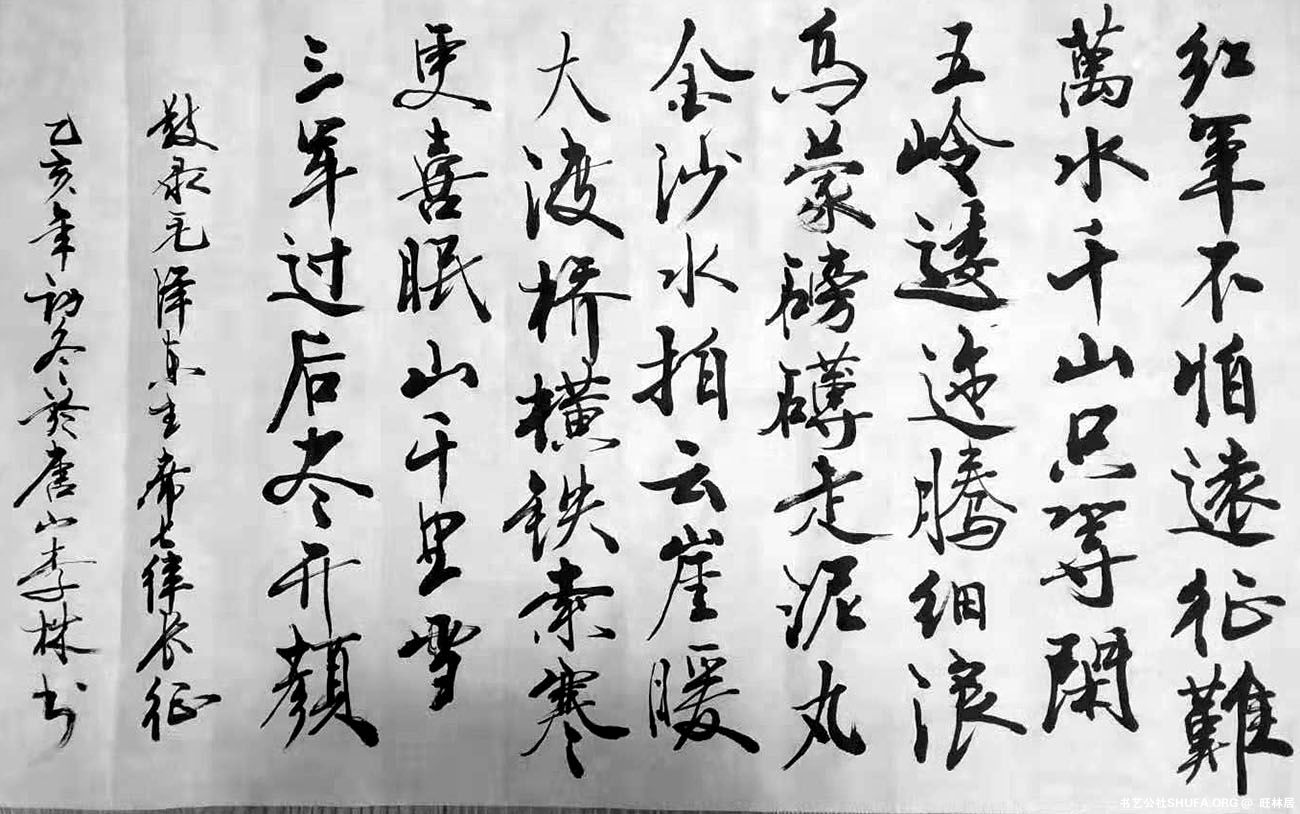 红軍不怕遠征難
萬水千山只等閑
五岭逶迤腾细浪
乌蒙磅礴走泥丸
金沙水拍云崖暖
大渡桥横铁索寒
更喜眠山千里雪
三军过后尽开颜
敬录毛泽东主席七律长征
己亥年初冬於唐山李株书
书艺公社SHUFA.ORG@ 旺林居